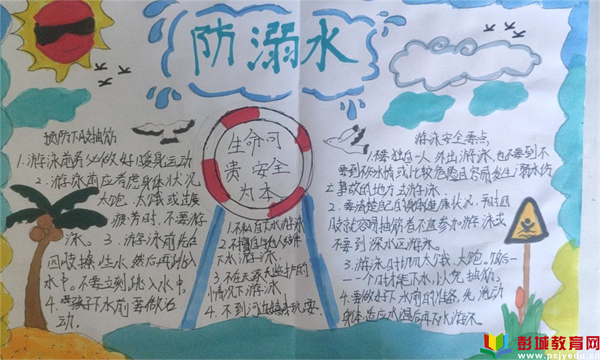 防溺水
预防下肢抽筋
1.游泳前有必做好暖身运动
2.游泳前应考虑身体状况
大饱、大饿或过度
疲劳时,不要游
泳。3.游泳前先在
四肢撩些水然后再跳入
水中。不要立刻跳入水中
4.孩子下水前要做活
动.
生命可
贵 安全
为本
1.不私自下水游泳
2.不擅自与他人结伴
下水游泳.
3.不在无家人监护的
情况下游泳
4.不到河边嬉戏玩耍.
游泳安全要点
1.不要独自一人外出游泳,也不要到不
要到不知水情或比较危险且容易发生溺水伤
亡事故的地方去游泳.
2.要清楚自己身体健康状况,平时四
肢就容易抽筋者不宜参加游泳或
不要到深水区游泳.
3.游泳时切几太饿、太饱.饭后一
一个时才能下水,以免抽筋.
4.要做好下水前的准备,先活动
身体,适应水温后再下水游泳.
彭城教育网
www.pcjyedu.cn